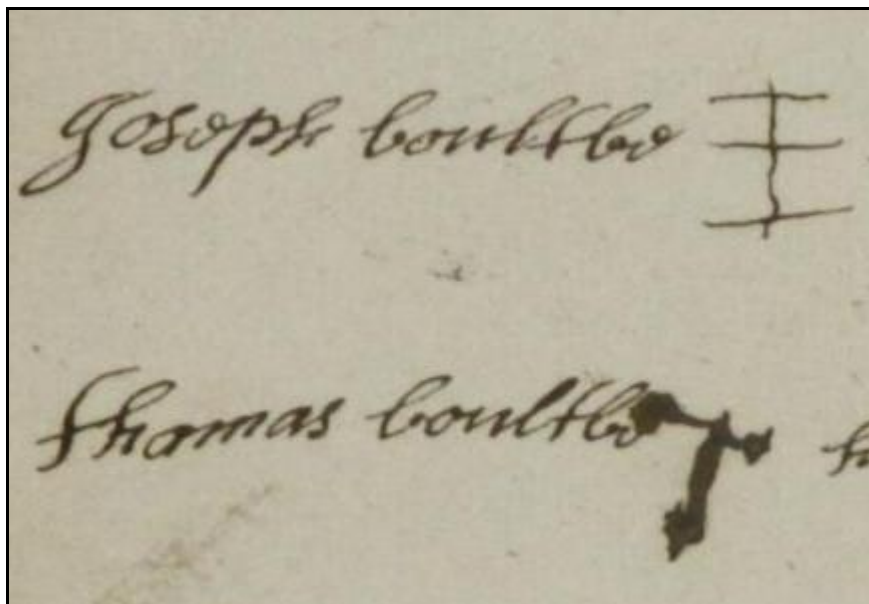 Joseph boultbe
thomas boultbe